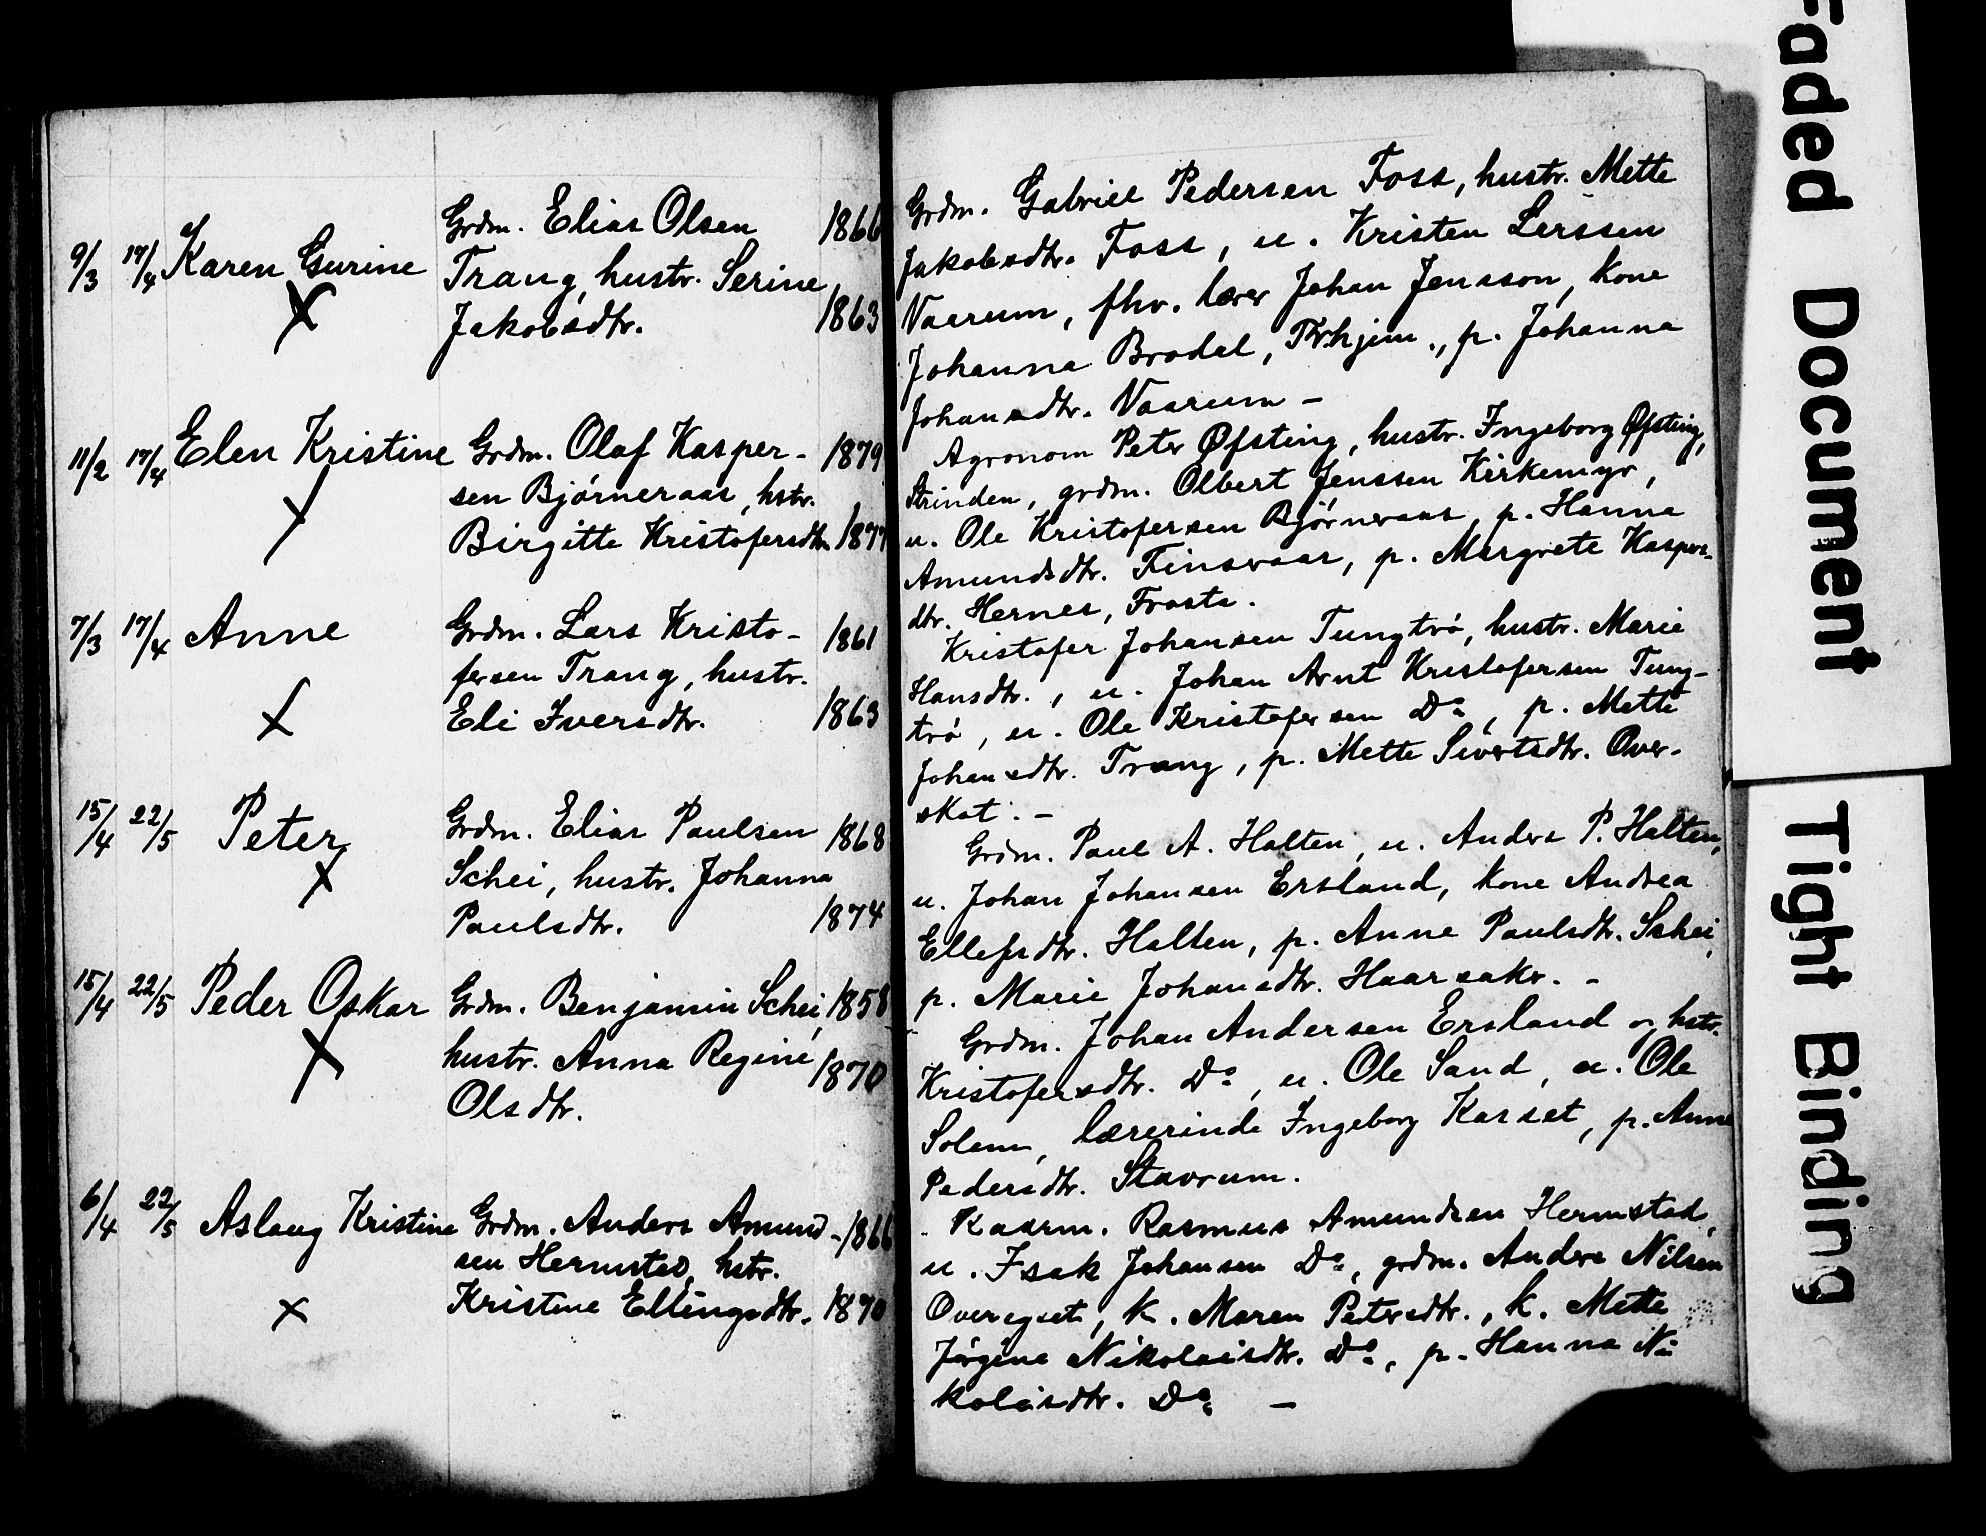 9/3 17/4 Karen Gurine Grdm. Elias Olsen 1866
Trang, hustr. Serine
Jakobsdtr. 1863
11/2 17/4 Elen Kristine Grdm. Olaf Kasper- 1879
sen Bjørneraas, hstr.
Birgitte Kristofersdtr. 1877
7/3 17/4 Anne Grdm. Lars Kristo- 1861
fersen Trang, hustr.
Eli Iversdtr. 1863
15/4 22/5 Peter Grdm. Elias Paulsen 1868
Schei, hustr. Johanna
Paulsdtr. 1874
15/4 22/5 Peder Oskar Grdm. Benjamin Schei, 1858
hustr. Anna Regine 1870
Olsdtr.
6/4 22/5 Aslaug Kristine Grdm. Anders Amund- 1866
sen Hermstad, hstr.
Kristine Ellingsdtr. 1870
Grdm. Gabriel Pedersen Foss, hustr. Mette
Jakobsdtr. Foss, u. Kristen Larssen
Vaarum, fhv. lærer Johan Jensson, kone
Johanna Bradal, Trhjem., p. Johanna
Johansdtr. Vaarum –
Agronom Peter Øfsting, hustr. Ingeborg Øfsting,
Strinden, grdm. Olbert Jenssen Kirkemyr,
u. Ole Kristofersen Bjørneraas, p. Hanna
Amundsdtr. Finsvaar, p. Margrete Kaspers-
dtr. Hernes, Frosta.
Kristofer Johansen Tungtrø, hustr. Marie
Hansdtr., u. Johan Arnt Kristofersen Tung-
trø, u. Ole Kristofersen Do, p. Mette
Johansdtr. Trang, p. Mette Sivertsdtr. Over-
skot. –
Grdm. Paul A. Halten, u. Anders P. Halten,
u. Johan Johansen Ersland, kone Andrea
Ellefsdtr. Halten, p. Anne Paulsdtr. Schei,
p. Marie Johansdtr. Haarsaker. –
Grdm. Johan Andersen Ersland og hstr.
Kristofersdtr. Do, u. Ole Sand, u. Ole
Solem, lærerinde Ingeborg Karset, p. Anne
Pedersdtr. Stavrum.
Kaarm. Rasmus Amundsen Hermstad,
u. Isak Johansen Do, grdm. Andrs Nilsen
Overegset, k. Maren Petersdtr., k. Mette
Jørgine Nikolaisdtr. Do, p. Hanna Ni-
kolaisdtr. Do –
Faded Document
Tight Binding